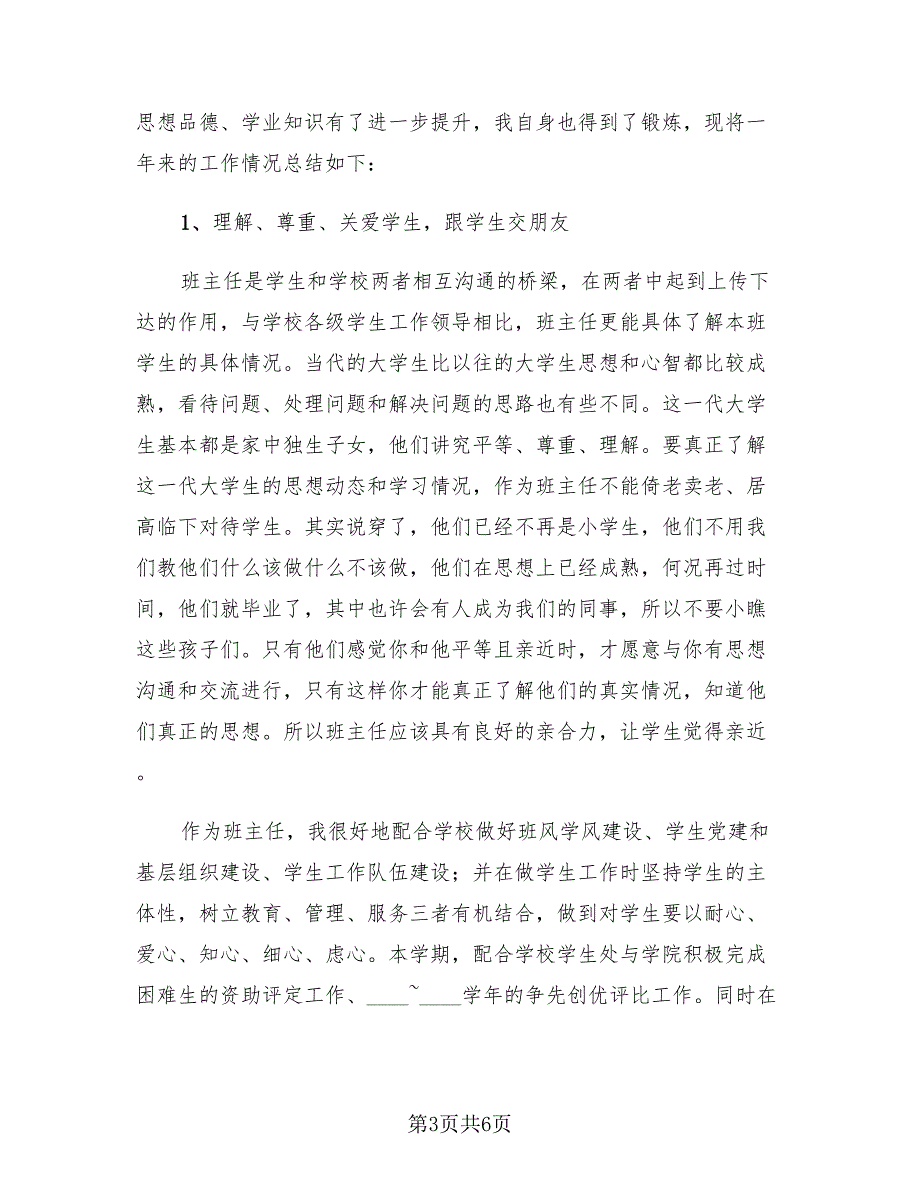 思想品德、学业知识有了进一步提升，我自身也得到了锻炼，现将一
年来的工作情况总结如下：
1、理解、尊重、关爱学生，跟学生交朋友
班主任是学生和学校两者相互沟通的桥梁，在两者中起到上传下
达的作用，与学校各级学生工作领导相比，班主任更能具体了解本班
学生的具体情况。当代的大学生比以往的大学生思想和心智都比较成
熟，看待问题、处理问题和解决问题的思路也有些不同。这一代大学
生基本都是家中独生子女，他们讲究平等、尊重、理解。要真正了解
这一代大学生的思想动态和学习情况，作为班主任不能倚老卖老、居
高临下对待学生。其实说穿了，他们已经不再是小学生，他们不用我
们教他们什么该做什么不该做，他们在思想上已经成熟，何况再过时
间，他们就毕业了，其中也许会有人成为我们的同事，所以不要小瞧
这些孩子们。只有他们感觉你和他平等且亲近时，才愿意与你有思想
沟通和交流进行，只有这样你才能真正了解他们的真实情况，知道他
们真正的思想。所以班主任应该具有良好的亲合力，让学生觉得亲近
。
作为班主任，我很好地配合学校做好班风学风建设、学生党建和
基层组织建设、学生工作队伍建设；并在做学生工作时坚持学生的主
体性，树立教育、管理、服务三者有机结合，做到对学生要以耐心、
爱心、知心、细心、虑心。本学期，配合学校学生处与学院积极完成
困难生的资助评定工作、____~____学年的争先创优评比工作。同时在
第3页共6页